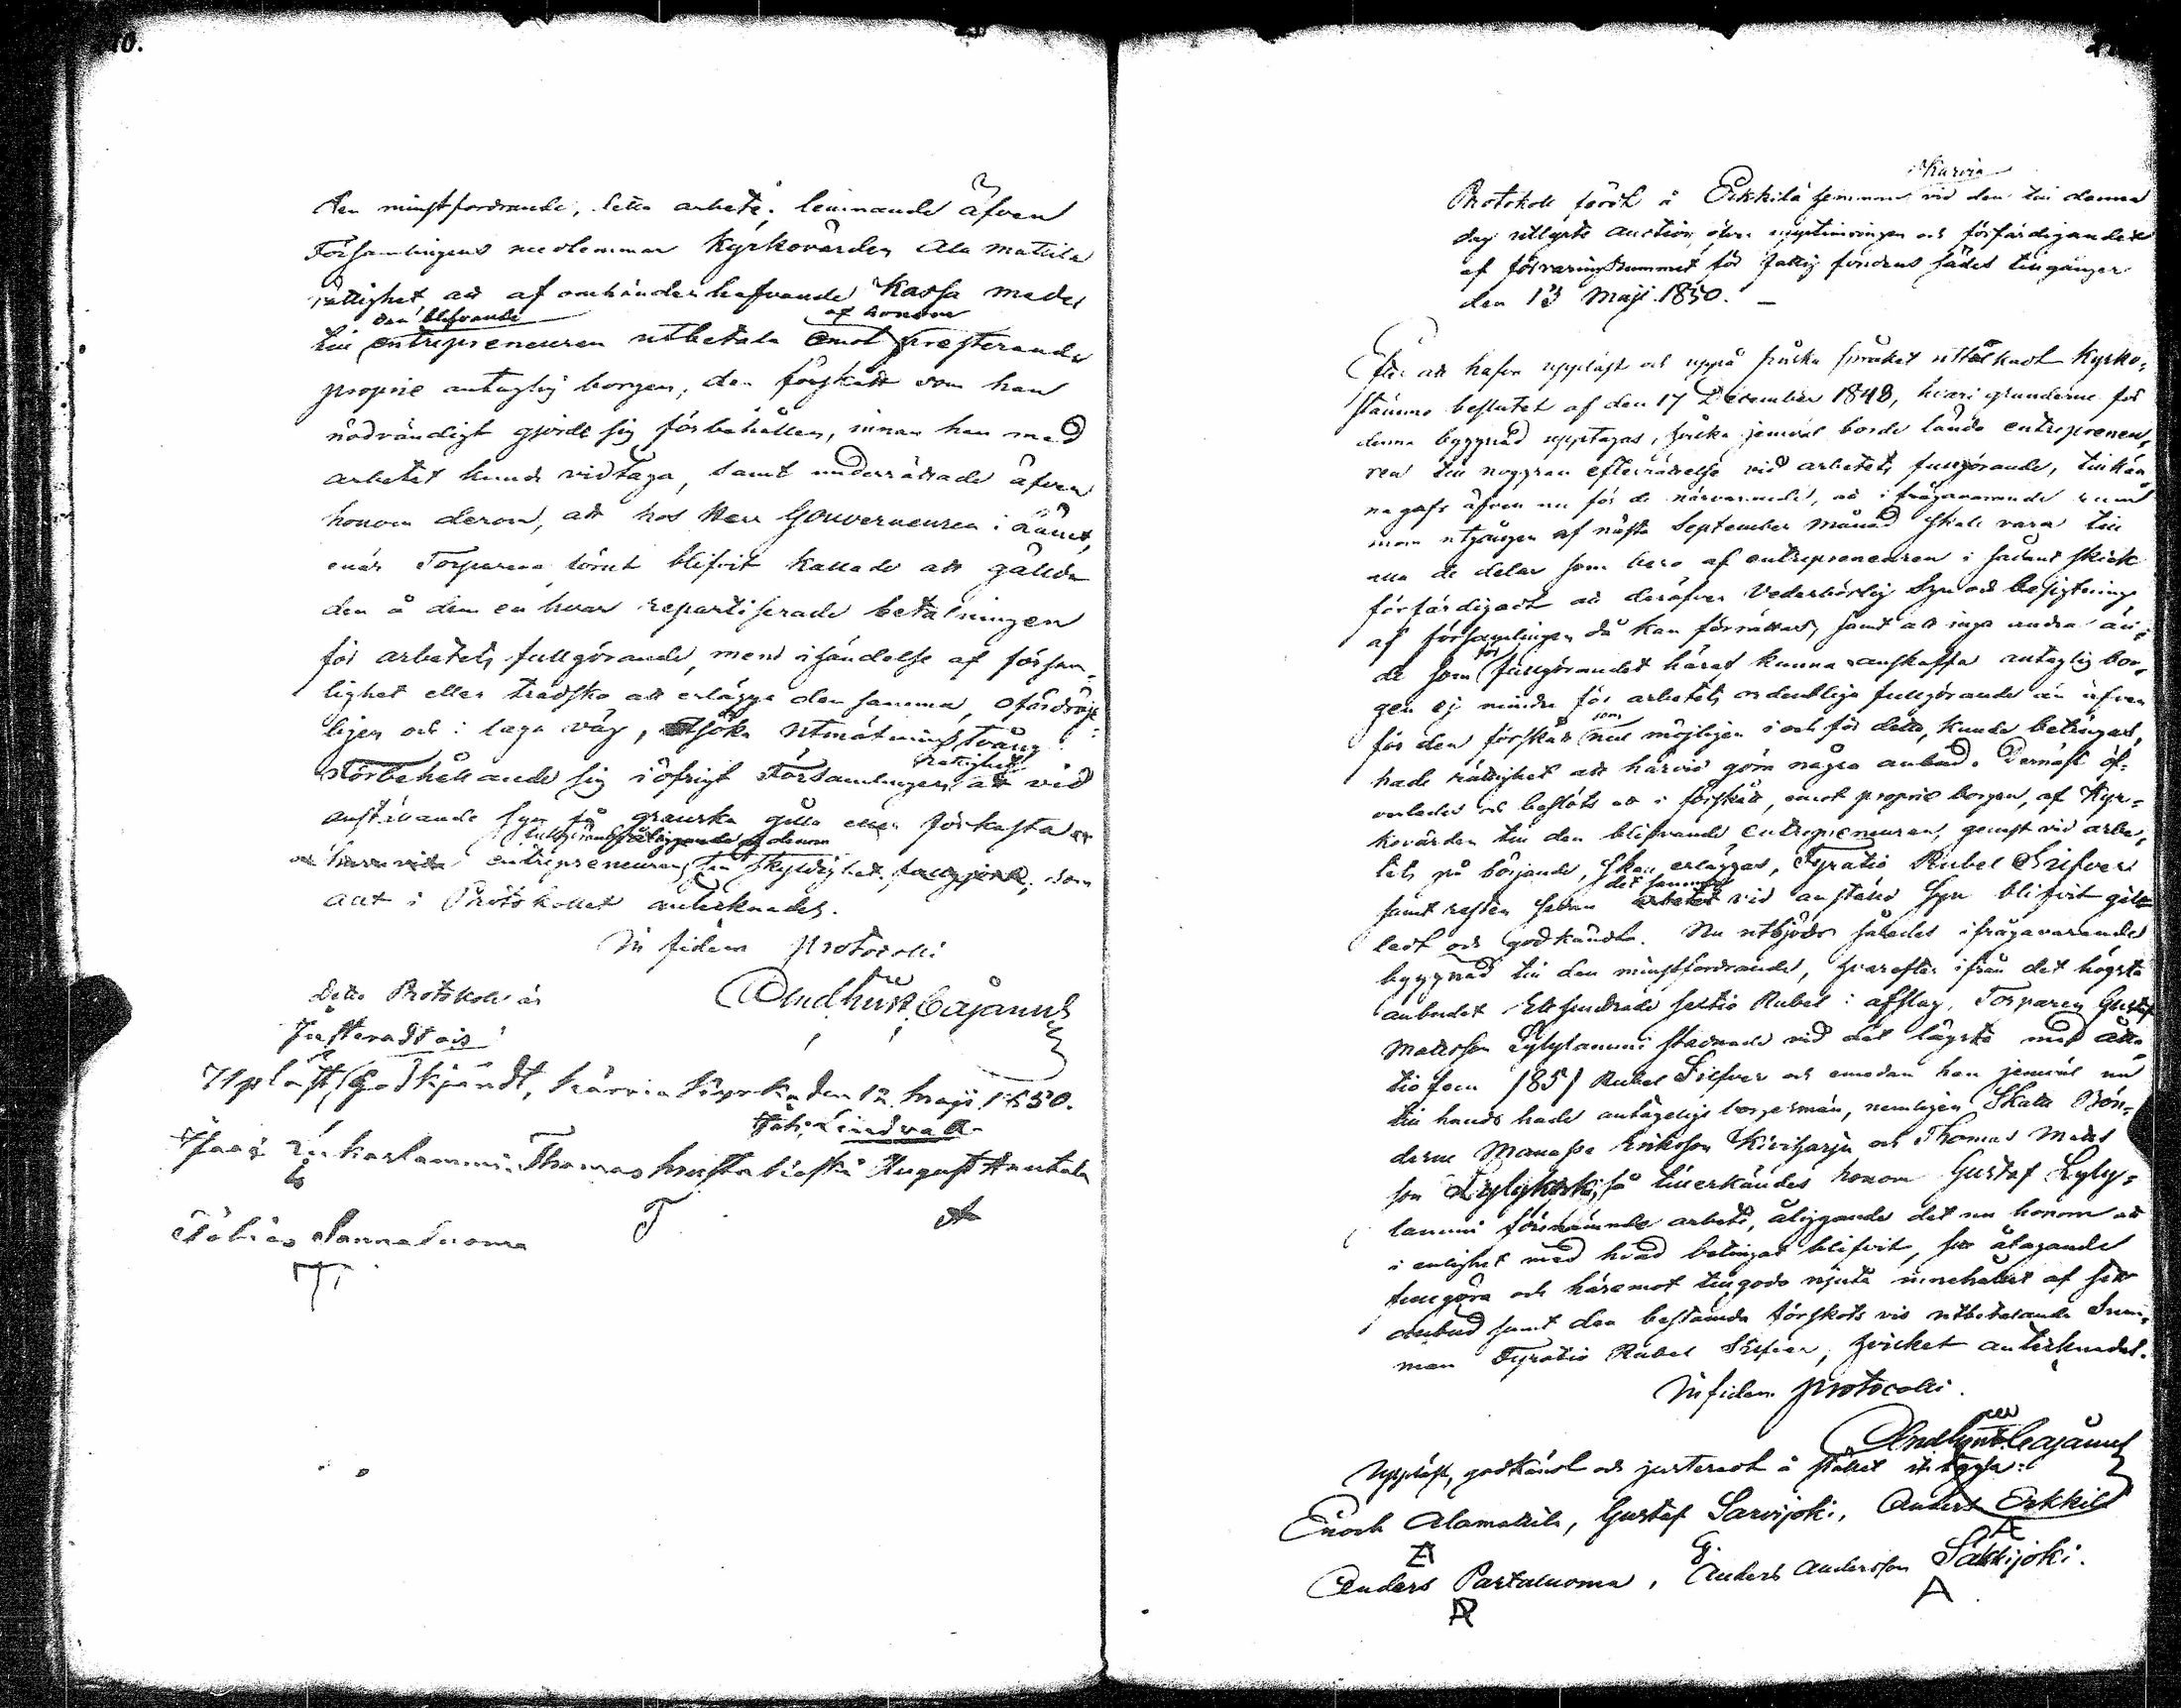 den minstfordrande, detta arbete; lemnande äfven
Församlingens medlemmar Kyrkovärden Ala Mattila
rättighet, att af omhänderhafvande Kassa medel
den blifvande af honom
till entrepreneuren utbetala emot presterande
proprie antaglig borgen, den förskott som han
nödvändigt gjorde sig förbehållen, innan han med
arbetet kunde vidtaga, samt underrättade äfven
honom derom, att hos Herr Gouverneuren i Länet,
enär Torparena blifvit kallade att gälda
den å dem en hvar repartiserade betalningen
för arbetets fullgörande, men i händelse af försum-
lighet eller tredska att erlägga den samma, ofördröj-
ligen och i laga väg, söka utmätnings tvång
rättighet
Förbehållande sig i öfrigt Församlingen att vid
anställande syn få granska gilla eller förkasta
fullgörandet åliggande af denne
entrepreneurens skyldighet, som
allt i Protokollet antecknades.
In fidem protocolli
And. Hint. Cajanus
Detta Protokoll är
Justeradt
Upläst, Godkjändt, Karvia Kyrka den 12 Maji 1850.
Joh: Lindvall
Isaac Thomas August Anttila
T A
Tobias Sannaluoma
T
Karvia
Protokoll fördt å Erkkilä hemman vid den till denna
dag utlyste auction, öfver upptimringen och förfärdigandet
af förvaringsrummet för fattig fondens sädes tillgångar
den 13 Maji 1850. —
Efter att hafva uppläst och uppå finska språket uttolkadt Kyrko-
stämmo beslutet af den 17 December 1848, hvari grunderne för
denna byggnad upptagas, hvilka jemväl borde lända entrepreneu-
ren till noggran efterrättelse vid arbetets fullgörande, tillkän-
nagafs äfven nu för de närvarande, att ifrågavarande rum
inom utgången af nästa September månad skall vara till
alla de delar som bero af entrepreneuren i sådant skick
förfärdigadt att deröfver Vederbörlig Syn och besigtning
af församlingen då kan förrättas, samt att inga andra än
för
de som fullgörandet häraf kunna anskaffa antaglig bor-
gen ej mindre för arbetets ordentliga fullgörande än äfven
som
för den förskott möjligen i och för detta, kunde betingas,
hade rättighet att härvid göra några anbud. Dernäst öf-
verlades och beslöts att i förskott, emot proprie borgen, af Kyr-
kovärden till den blifvande entrepreneuren, genast vid arbe-
tets på börjande, skall erläggas, Fyratio Rubel Silfver
det samma
samt resten sedan arbetet vid anstäld Syn blifvit gil-
ladt och godkändt. Nu utbjöds således ifrågavarande
byggnad till den minstfordrande, hvarefter ifrån det högsta
anbudet Etthundrade sextio Rubel i afslag, Torparen Gustaf
Mattsson Lylylammi stadnade vid det lägsta med åtta-
tio fem /85/ Rubel Silfver och emedan han jemväl nu
till hands hade antagelige borgesmän, nemligen Skatte Bön-
derne Manasse Eriksson Kiviharju och Thomas Matts
son Lylykoski, så tillerkändes honom Gustaf Lyly-
lammi förenämnde arbete, åliggande det nu honom att
i enlighet med hvad betingat blifvit, sitt åtagande
fullgöra och häremot tillgodo njuta innehållet af sitt
anbud samt den bestämda förskotts vis utbetalande Sum-
man Fyratio Rubel Silfver, hvilket antecknades.
In fidem protocolli.
And. Hint. Cajanus
Uppläst, godkändt och justeradt å stället
Enoch Alamattila, Gustaf Sarvijoki, Anders Erkkilä
EA G. AE
Anders Partaluoma, Anders Andersson Sarvijoki.
AP A